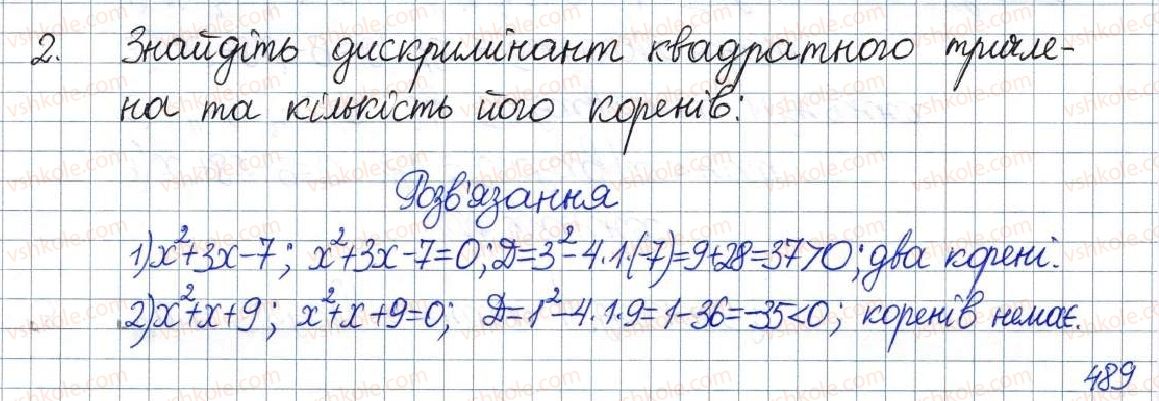 2. Знайдіть дискримінант квадратного тричле-
на та кількість його коренів:
Розв'язання
1) x²+3x-7; x²+3x-7=0; Д=3²-4·1·(-7)=9+28=37>0; два корені.
2) x²+x+9; x²+x+9=0; Д=1²-4·1·9=1-36=-35<0; коренів немає.
489